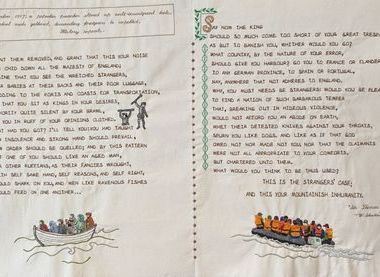 GRANT THEM REMOVED, AND GRANT THAT THIS YOUR NOISE
CHID DOWN ALL THE MAJESTY OF ENGLAND;
THAT YOU SEE THE WRETCHED STRANGERS,
BABIES AT THEIR BACKS AND THEIR POOR LUGGAGE,
TO THE PORTS AND COASTS FOR TRANSPORTATION,
THAT YOU SIT AS KINGS IN YOUR DESIRES,
QUITE SILENT BY YOUR BRAWL,
YOU IN RUFF OF YOUR OPINIONS CLOTHED,
HAD YOU GOT? I'LL TELL YOU: YOU HAD TAUGHT
INSOLENCE AND STRONG HAND SHOULD PREVAIL,
ORDER SHOULD BE QUELLED; AND BY THIS PATTERN
ONE OF YOU SHOULD LIVE AN AGED MAN,
OTHER RUFFIANS, AS THEIR FANCIES WROUGHT,
SELF SAME HAND, SELF REASONS, AND SELF RIGHT,
SHARK ON YOU, AND MEN LIKE RAVENOUS FISHES
FEED ON ONE ANOTHER...
SAY NOW THE KING
SHOULD SO MUCH COME TOO SHORT OF YOUR GREAT TRESPASS
AS BUT TO BANISH YOU, WHITHER WOULD YOU GO?
WHAT COUNTRY, BY THE NATURE OF YOUR ERROR,
SHOULD GIVE YOU HARBOUR? GO YOU TO FRANCE OR FLANDERS
TO ANY GERMAN PROVINCE, TO SPAIN OR PORTUGAL,
NAY, ANYWHERE THAT NOT ADHERES TO ENGLAND,
WHY, YOU MUST NEEDS BE STRANGERS: WOULD YOU BE PLEASED
TO FIND A NATION OF SUCH BARBAROUS TEMPER
THAT, BREAKING OUT IN HIDEOUS VIOLENCE,
WOULD NOT AFFORD YOU AN ABODE ON EARTH,
WHET THEIR DETESTED KNIVES AGAINST YOUR THROATS,
SPURN YOU LIKE DOGS, AND LIKE AS IF THAT GOD
OWED NOT NOR MADE NOT YOU, NOR THAT THE CLAIMANTS
WERE NOT ALL APPROPRIATE TO YOUR COMFORTS,
BUT CHARTERED UNTO THEM,
WHAT WOULD YOU THINK TO BE THUS USED?
THIS IS THE STRANGERS' CASE;
AND THIS YOUR MOUNTAINISH INHUMANITY.